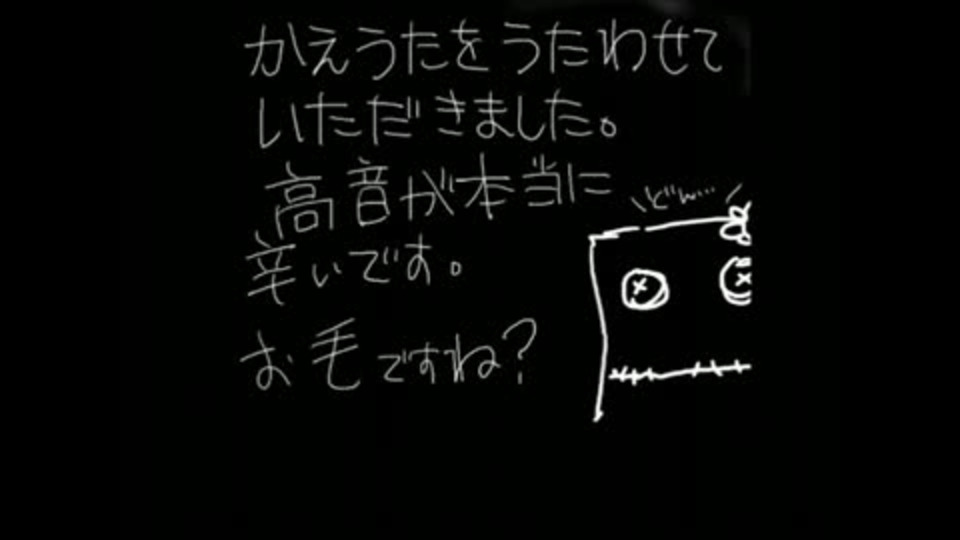 かえうたをうたわせて
いただきました。
高音が本当に
辛いです。
お毛ですね?
どん…